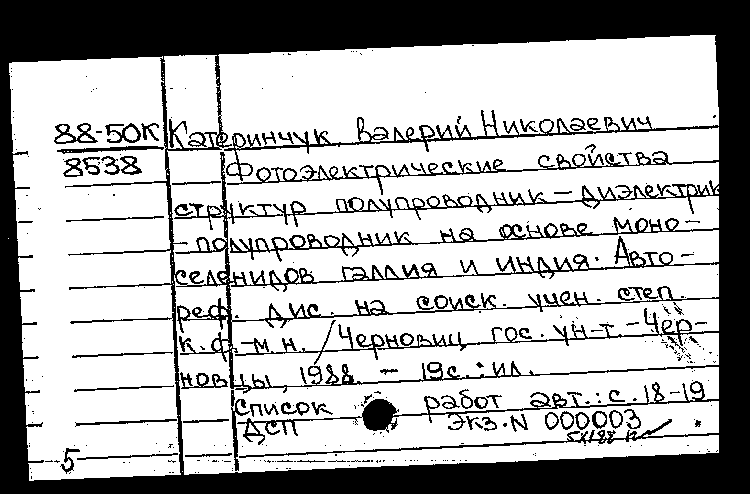 88-50К Катеринчук Валерий Николаевич
8538 Фотоэлектрические свойства
структур полупроводник - диэлектрик
- полупроводник на основе моно-
селенидов галлия и индия. Авто-
реф. дис. на соиск. учен. степ.
к.ф.-м.н. / Черновиц. гос. ун-т. - Чер-
новцы, 1988. - 19с.: ил.
Список работ авт.: с. 18-19
ДСП Экз. N 000003
5